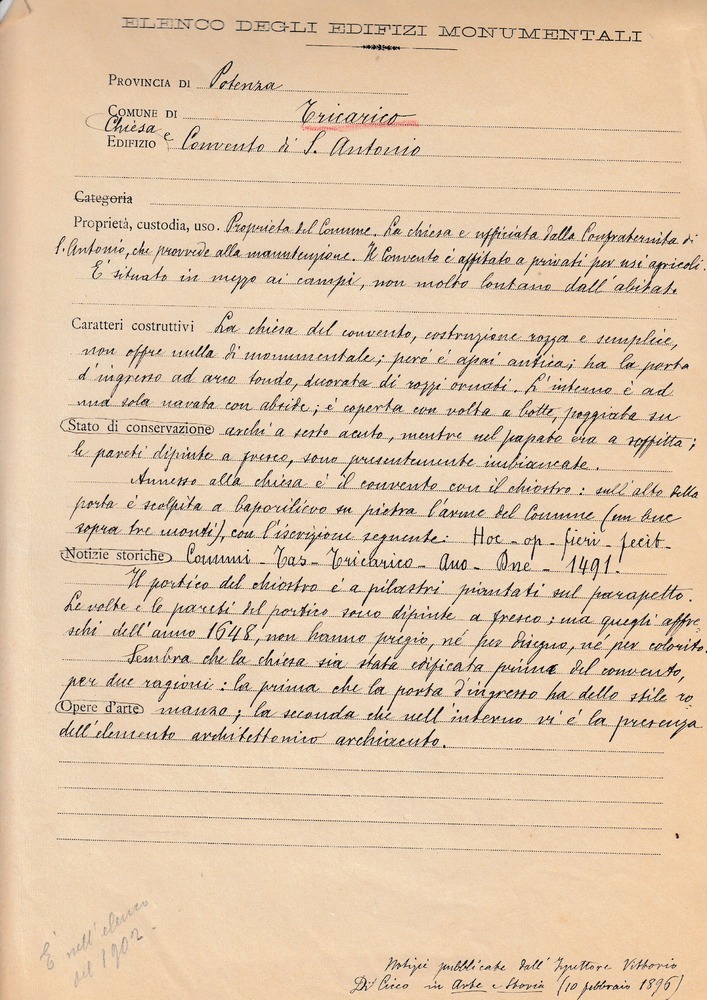 ELENCO DEGLI EDIFIZI MONUMENTALI
PROVINCIA DI Potenza
COMUNE DI Tricarico
Chiesa e
EDIFIZIO Convento di S. Antonio
Categoria
Proprietà, custodia, uso. Proprietà del Comune. La chiesa è ufficiata dalla Confraternita di
S. Antonio, che provvede alla manutenzione. Il Convento è affitato a privati per usi agricoli.
È situato in mezzo ai campi, non molto lontano dall'abitato
Caratteri costruttivi La chiesa del convento, costruzione rozza e semplice,
non offre nulla di monumentale; però è assai antica; ha la porta
d'ingresso ad arco tondo, decorata di rozzi ornati. L'interno è ad
una sola navata con abside; è coperta con volta a botte, poggiata su
Stato di conservazione archi a sesto acuto, mentre nel passato era a soffitta;
le pareti dipinte a fresco, sono presentemente imbiancate.
Annesso alla chiesa è il convento con il chiostro: sull'alto della
porta è scolpita a bassorilievo su pietra l'arme del Comune (un bue
sopra tre monti), con l'iscrizione seguente: Hoc - op - fieri - fecit -
Notizie storiche Comuni - Tas - Tricarico - Ano - Dne - 1491.
Il portico del chiostro è a pilastri piantati sul parapetto.
Le volte e le pareti del portico sono dipinte a fresco; ma quegli affre
schi dell'anno 1648, non hanno pregio, né per disegno, né per colorito.
Sembra che la chiesa sia stata edificata prima del convento,
per due ragioni: la prima che la porta d'ingresso ha dello stile ro
Opere d'arte manzo; la seconda che nell'interno vi è la presenza
dell'elemento architettonico archiacuto.
È nell'elenco
del 1902.
Notizie pubblicate dall'Ispettore Vittorio
Di Cicco in Arte e Storia (10 febbraio 1896)